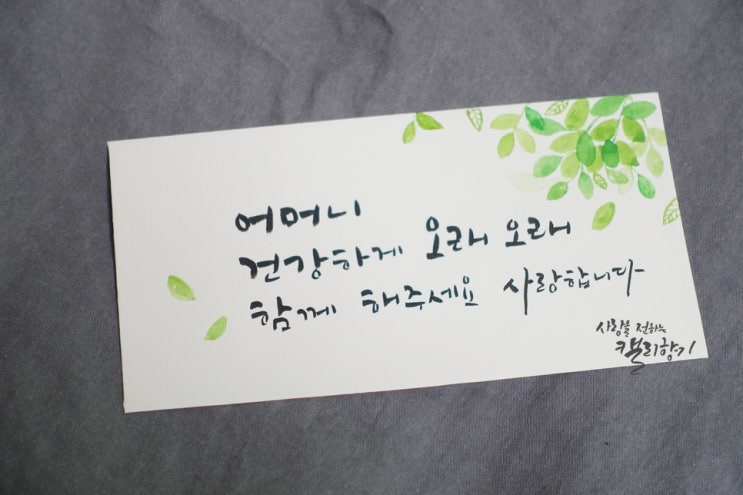 어머니
건강하게 오래 오래
함께 해주세요 사랑합니다
사랑을 전하는
캘리향기